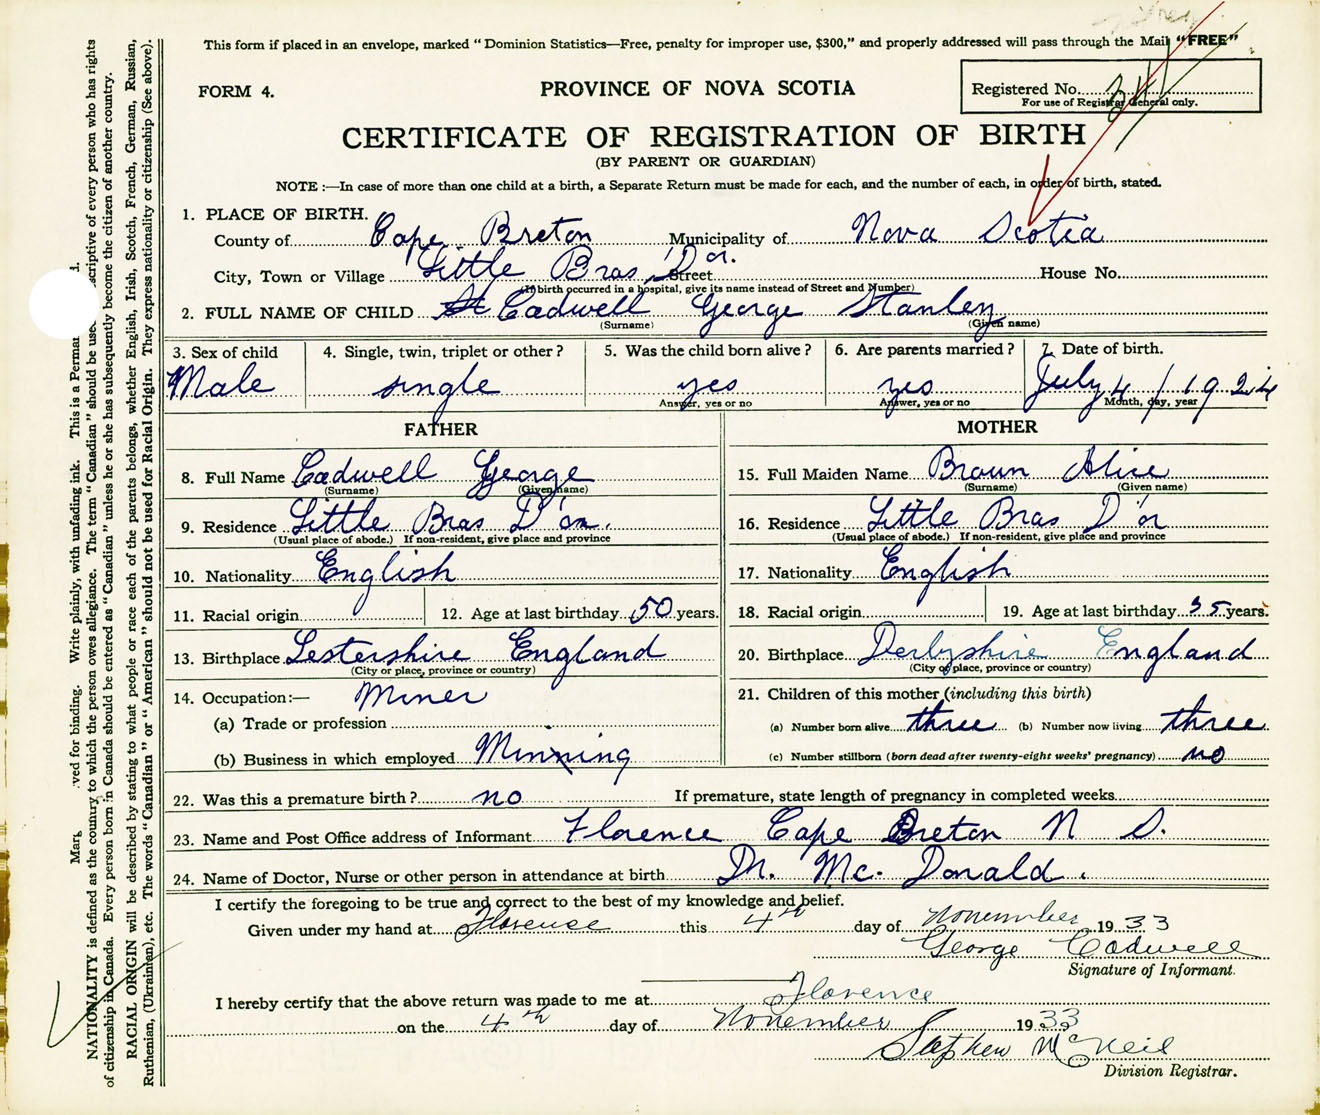 This form if placed in an envelope, marked "Dominion Statistics—Free, penalty for improper use, $300," and properly addressed will pass through the Mail "FREE"
FORM 4.
PROVINCE OF NOVA SCOTIA
Registered No.
For use of Registrar General only.
CERTIFICATE OF REGISTRATION OF BIRTH
(BY PARENT OR GUARDIAN)
NOTE :—In case of more than one child at a birth, a Separate Return must be made for each, and the number of each, in order of birth, stated.
1. PLACE OF BIRTH.
County of Cape Breton Municipality of Nova Scotia
City, Town or Village Little Bras D'or. Street House No.
(If birth occurred in a hospital, give its name instead of Street and Number)
2. FULL NAME OF CHILD Cadwell George Stanley
(Surname) (Given name)
3. Sex of child 4. Single, twin, triplet or other ? 5. Was the child born alive ? 6. Are parents married ? 7. Date of birth.
Male single yes yes July 4 / 1924
Answer, yes or no Answer, yes or no Month, day, year
FATHER
8. Full Name Cadwell George
(Surname) (Given name)
9. Residence Little Bras D'or.
(Usual place of abode.) If non-resident, give place and province
10. Nationality English
11. Racial origin 12. Age at last birthday 50 years.
13. Birthplace Lestershire England
(City or place, province or country)
14. Occupation:— Miner
(a) Trade or profession
(b) Business in which employed Minning
MOTHER
15. Full Maiden Name Brown Alice
(Surname) (Given name)
16. Residence Little Bras D'or
(Usual place of abode.) If non-resident, give place and province
17. Nationality English
18. Racial origin 19. Age at last birthday 35 years.
20. Birthplace Derbyshire England
(City or place, province or country)
21. Children of this mother (including this birth)
(a) Number born alive three (b) Number now living three
(c) Number stillborn (born dead after twenty-eight weeks' pregnancy) no
22. Was this a premature birth ? no If premature, state length of pregnancy in completed weeks
23. Name and Post Office address of Informant Florence Cape Breton N S.
24. Name of Doctor, Nurse or other person in attendance at birth Dr. Mc. Donald.
I certify the foregoing to be true and correct to the best of my knowledge and belief.
Given under my hand at Florence this 4th day of November 1933
George Cadwell
Signature of Informant.
I hereby certify that the above return was made to me at Florence
on the 4th day of November 1933
Stephen McNeil
Division Registrar.
Mar ved for binding. Write plainly, with unfading ink. This is a Perma d.
NATIONALITY is defined as the country to which the person owes allegiance. The term "Canadian" should be use scriptive of every person who has rights
of citizenship in Canada. Every person born in Canada should be entered as "Canadian" unless he or she has subsequently become the citizen of another country.
RACIAL ORIGIN will be described by stating to what people or race each of the parents belongs, whether English, Irish, Scotch, French, German, Russian,
Ruthenian, (Ukrainian), etc. The words "Canadian" or "American" should not be used for Racial Origin. They express nationality or citizenship (See above).